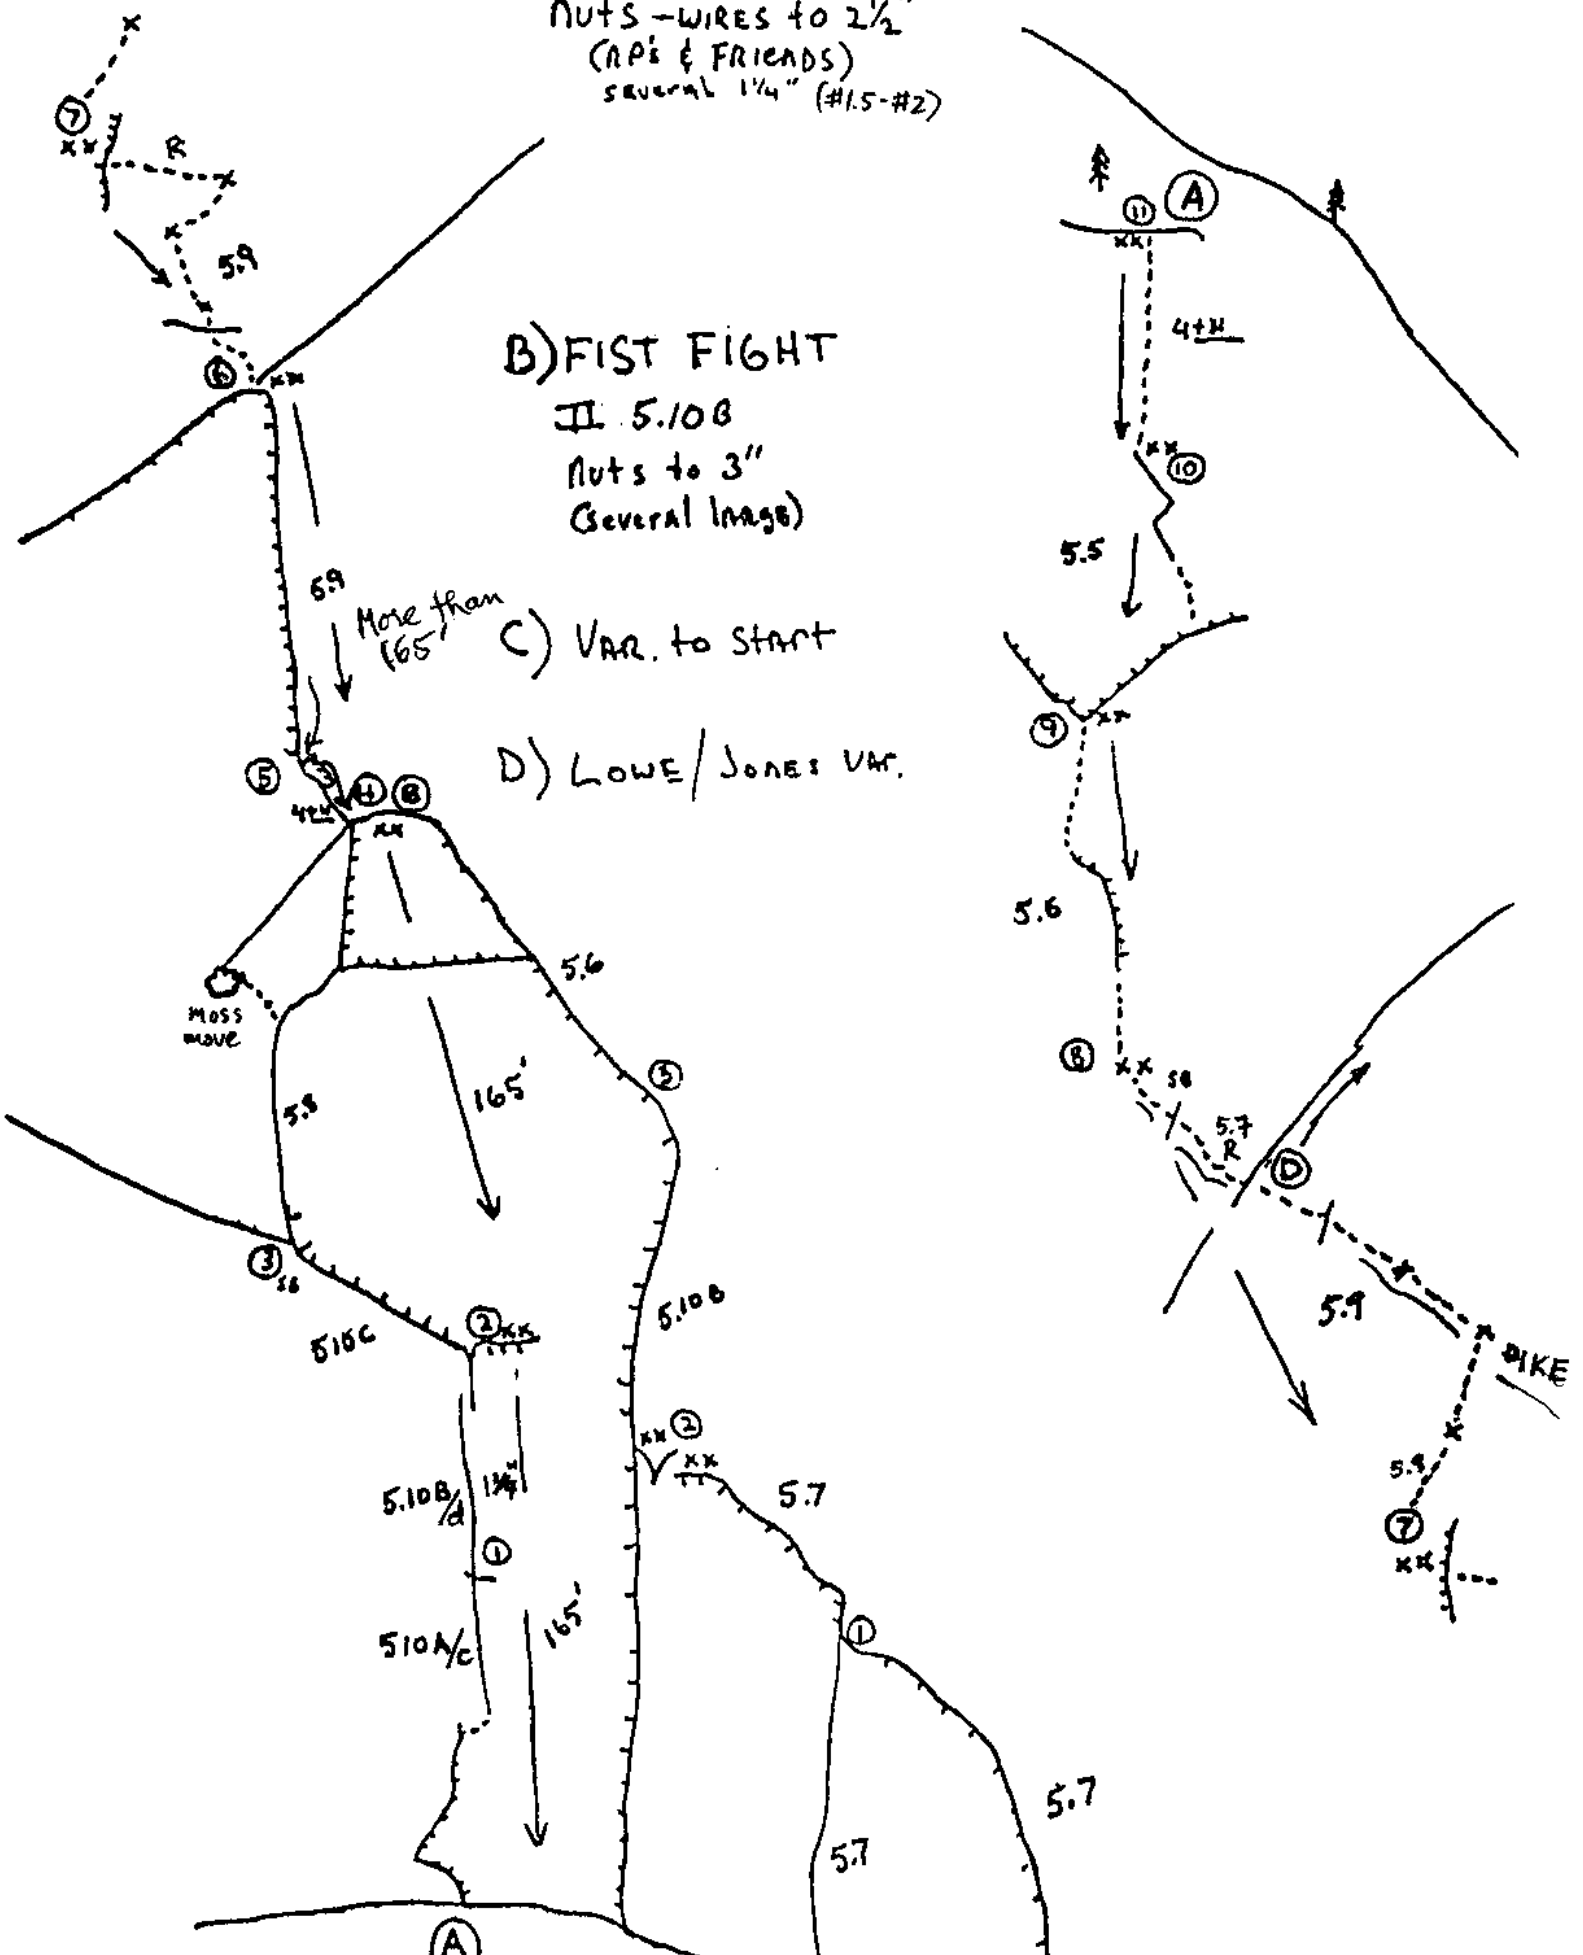 nuts - WIRES to 2½"
(RP's & FRIENDS)
several 1¼" (#1.5-#2)
7
xx
R
5.9
6
xx
B) FIST FIGHT
II 5.10B
nuts to 3"
(several large)
5.9
More than
165'
C) VAR. to START
D) LOWE/JONES VAR.
5
4th
4
B
xx
5.6
Moss
move
165'
3
5.8
3
SB
5.10C
2
xx
5.10B
xx
2
xx
5.7
5.10B/d
1
5.10A/c
165'
1
5.7
5.7
A
11
A
xx
4th
xx
10
5.5
9
xx
5.6
8
xx
SB
5.7
R
D
5.9
DIKE
5.9
7
xx